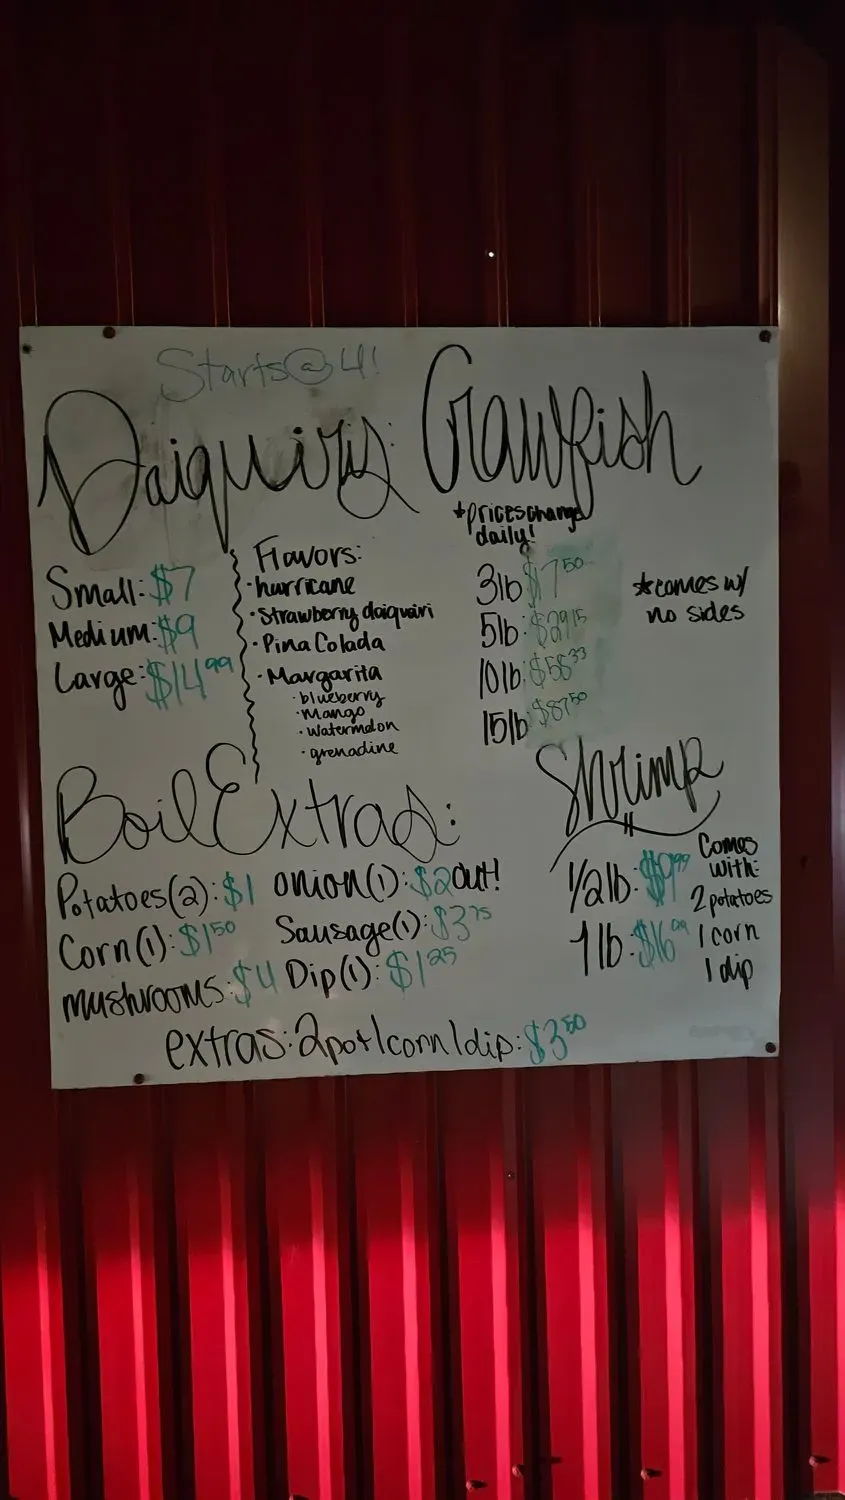 Starts@4!
Daiquiris:
Small: $7
Medium: $9
Large: $14.99
Flavors:
· hurricane
· Strawberry daiquiri
· Pina Colada
· Margarita
· blueberry
· Mango
· Watermelon
· grenadine
Crawfish
*prices change
daily!
3lb $17.50
5lb: $29.15
10lb: $58.33
15lb: $87.50
*comes w/
no sides
Boil Extras:
Potatoes(2): $1
Corn(1): $1.50
mushrooms: $4
onion(1): $2 out!
Sausage(1): $3.75
Dip(1): $1.25
extras: 2pot/corn/dip: $3.50
Shrimp
1/2lb: $9.99
1lb: $16.99
Comes
with:
2 potatoes
1 corn
1 dip